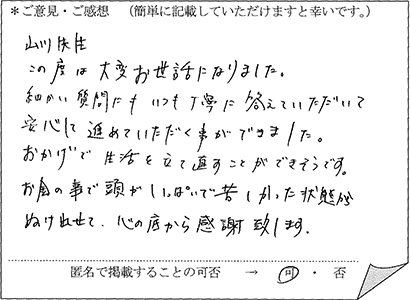 *ご意見・ご感想 (簡単に記載していただけますと幸いです。)
山川先生
この度は大変お世話になりました。
細かい質問にもいつも丁寧に答えていただいて
安心して進めていただく事ができました。
おかげで生活を立て直すことができそうです。
お金の事で頭がいっぱいで苦しかった状態から
ぬけ出せて、心の底から感謝致します.
匿名で掲載することの可否 → 可・否